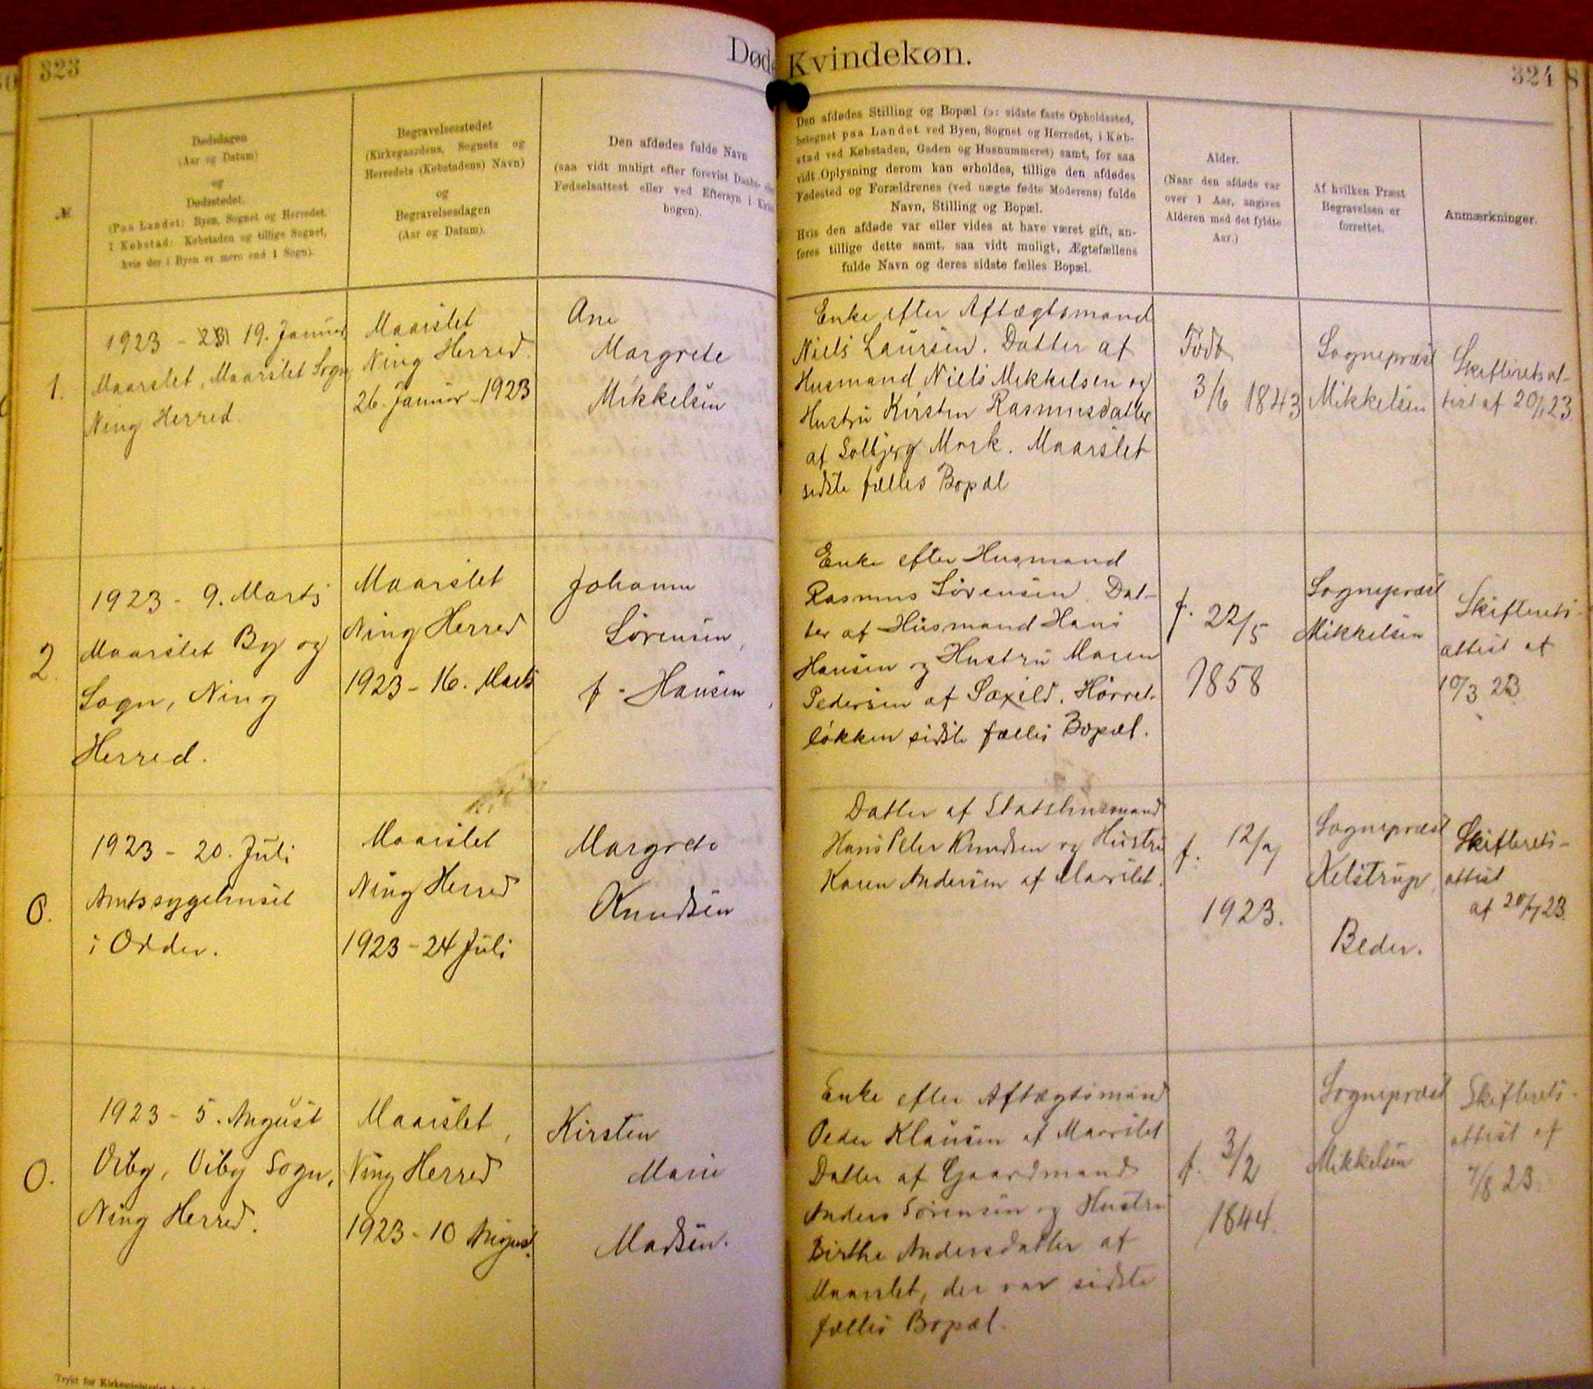 323
Døde Kvindekøn.
324
№
Dødsdagen
(Aar og Datum)
og
Dødsstedet.
(Paa Landet: Byen, Sognet og Herredet,
I Købstad: Købstaden og tillige Sognet,
hvis der i Byen er mere end 1 Sogn).
Begravelsesstedet
(Kirkegaardens, Sognets og
Herredets (Købstadens) Navn)
og
Begravelsesdagen
(Aar og Datum).
Den afdødes fulde Navn
(saa vidt muligt efter forevist Daabs- eller
Fødselsattest eller ved Eftersyn i Kirke-
bogen).
Den afdødes Stilling og Bopæl (ɔ: sidste faste Opholdssted,
betegnet paa Landet ved Byen, Sognet og Herredet, i Køb-
stad ved Købstaden, Gaden og Husnummeret) samt, for saa
vidt Oplysning derom kan erholdes, tillige den afdødes
Fødested og Forældrenes (ved uægte fødte Moderens) fulde
Navn, Stilling og Bopæl.
Hvis den afdøde var eller vides at have været gift, an-
føres tillige dette samt, saa vidt muligt, Ægtefællens
fulde Navn og deres sidste fælles Bopæl.
Alder.
(Naar den afdøde var
over 1 Aar, angives
Alderen med det fyldte
Aar.)
Af hvilken Præst
Begravelsen er
forrettet.
Anmærkninger.
1.
1923 - 19. Januar
Maarslet, Maarslet Sogn
Ning Herred
Maarslet
Ning Herred.
26. Januar - 1923
Ane
Margrete
Mikkelsen
Enke efter Aftægtsmand
Niels Laursen. Datter af
Husmand Niels Mikkelsen og
Hustru Kirsten Rasmusdatter
af Solbjerg Mark. Maarslet
sidste fælles Bopæl
Født
3/6 1843
Sognepræst
Mikkelsen
Skifteretsat-
test af 20/1 23
2.
1923 - 9. Marts
Maarslet By og
Sogn, Ning
Herred.
Maarslet
Ning Herred
1923 - 16. Marts
Johanne
Sørensen,
f. Hansen,
Enke efter Husmand
Rasmus Sørensen. Dat-
ter af Husmand Hans
Hansen og Hustru Maren
Pedersen af Saxild. Hørret-
løkken sidste fælles Bopæl.
f. 22/5
1858
Sognepræst
Mikkelsen
Skifterets-
attest af
10/3 23
0.
1923 - 20. Juli
Amtssygehuset
i Odder.
Maarslet
Ning Herred
1923 - 24 Juli
Margrete
Knudsen
Datter af Statshusmand
Hans Peter Knudsen og Hustru
Karen Andersen af Maarslet.
f. 12/7
1923.
Sognepræst
Kelstrup,
Beder.
Skifterets-
attest
af 20/7 23.
0.
1923 - 5. August
Viby, Viby Sogn,
Ning Herred.
Maarslet,
Ning Herred
1923 - 10 August.
Kirsten
Marie
Madsen.
Enke efter Aftægtsmand
Peder Klausen af Maarslet
Datter af Gaardmand
Anders Sørensen og Hustru
Birthe Andersdatter af
Maarslet, der var sidste
fælles Bopæl.
f. 3/2
1844.
Sognepræst
Mikkelsen
Skifterets-
attest af
7/8 23.